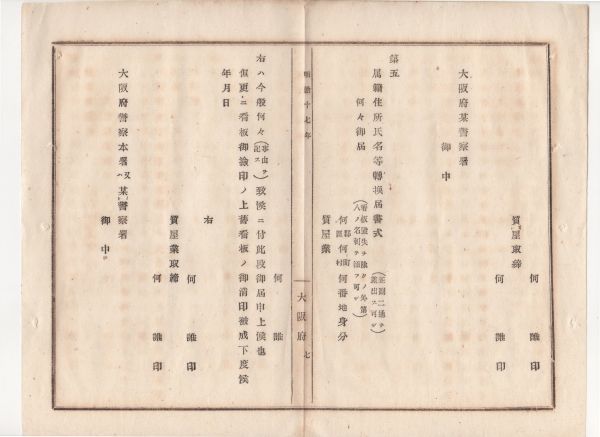 何誰印
質屋取締
何誰印
大阪府某警察署
御中
第五
属籍住所氏名等轉換届書式
(正副二通ヲ差出ス可シ)
何々御届
(看板遺失ヲ除クノ外第八ノ名刺ヲ添フ可シ)
何郡區何町村何番地身分
質屋業
何誰
大阪府
七
明治十七年
右ハ今般何々(事由ヲ記ス)致候ニ付此段御届申上候也
但更ニ看板御檢印ノ上舊看板ノ御消印被成下度候
年月日
右
何誰印
質屋業取締
何誰印
大阪府警察本署又ハ某警察署
御中